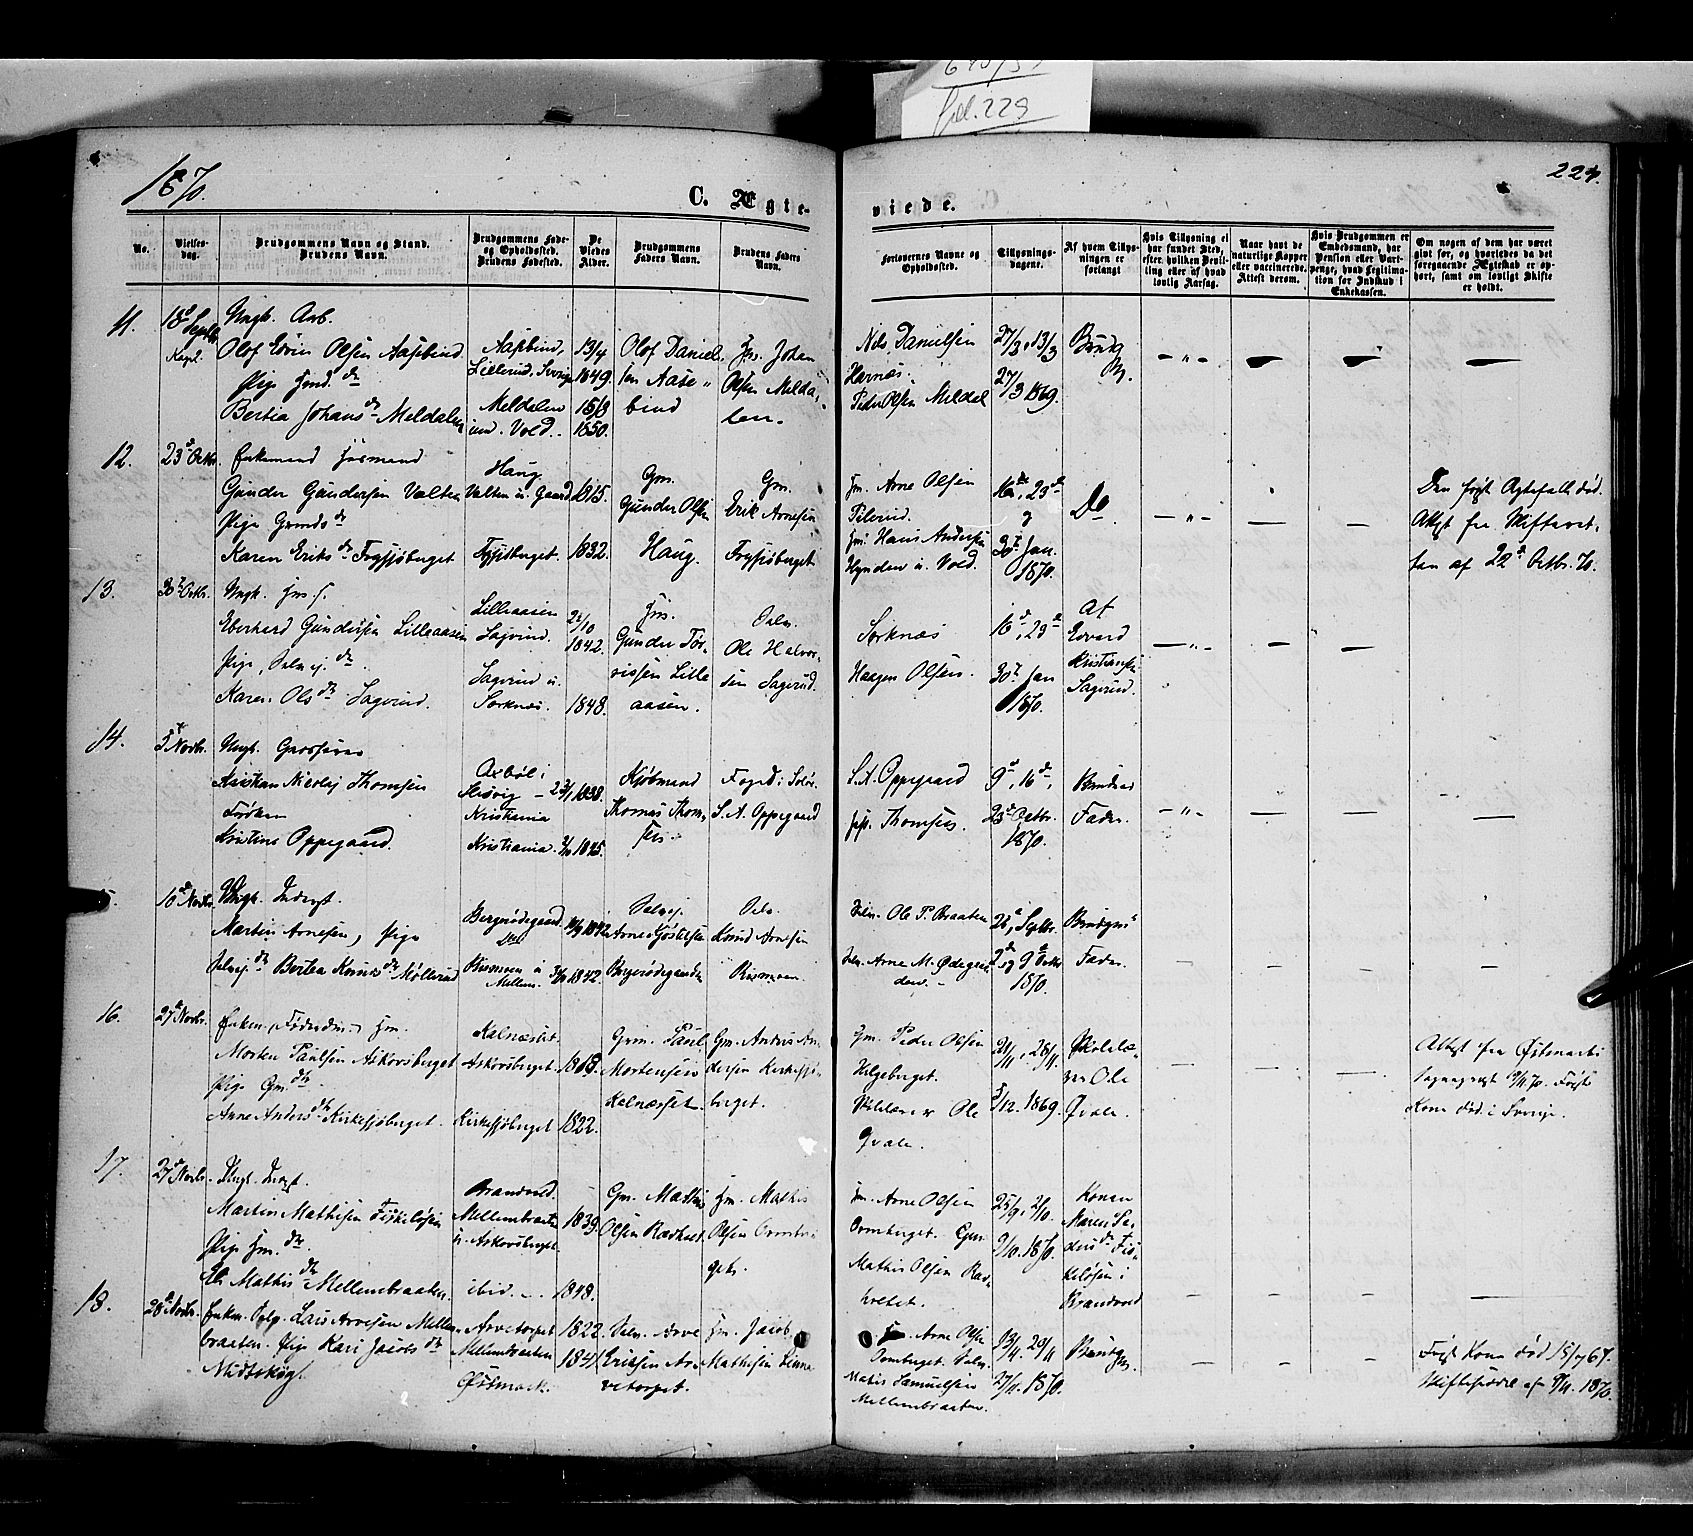 fol. 229
1870.
229.
C. Ægte-
viede.
No.
Vielses-
dag.
Brudgommens Navn og Stand.
Brudens Navn.
Brudgommens Føde-
og Opholdssted.
Brudens Fødested.
De
Viedes
Alder.
Brudgommens
Faders Navn.
Brudens Faders
Navn.
Forlovernes Navne og
Opholdssted.
Tillysnings-
dagene.
Af hvem Tillys-
ningen er
forlangt
Hvis Tillysning ei
har fundet Sted,
efter hvilken Bevil-
ling eller af hvad
lovlig Aarsag.
Naar havt de
naturlige Kopper
eller vaccinerede.
Attest derom.
Hvis Brudgommen er
Embedsmand, har
Pension eller Vart-
penge, hvad Legitima-
tion for Indskud i
Enkekassen.
Om nogen af dem har været
gift før, og hvorledes da det
foregaaende Ægteskab er op-
hørt, samt om lovligt Skifte
er holdt.
11.
18de Septbr.
Ungk. Arb.
Olof Edvin Olsen Aasebind
Pige
Bertia Johansdtr Meldalen
Aasebind,
Lillerud, Sverige
Meldalen
un. Vold.
13/4
1849.
15/3
1850.
Olof Daniel-
sen Aase-
bind
Hm. Johan
Olsen Melda-
len.
Nils Danielsen
Harnæs.
Peder Olsen Meldal
27/3 1869.
Brudg
12.
23de Octbr.
Enkemand Husmand
Gunder Gundersen Valten
Pige Gmdsdtr
Karen Eriksdtr Frysjøberget
Haug
Valten u. Gaard
Frysjøberget.
1815.
1832.
Gm.
Gunder Olsen
Haug.
Gm.
Erik Arnesen
Frysjøberget
Hm. Arne Olsen
Hm. Hans Andersen
Hynden u. Vold.
16de, 23de
og
30te Jan.
1870.
Do
Den første Ægtefælle død.
Attest fra Skifteret-
ten af 22de Octbr. 70.
13.
30te Octbr.
Ungk. Hms.
Eberhard Gundersen Lilleaasen
Pige, Selvej.dtr
Karen Olsdtr Sagerud.
Lilleaasen
Sagerud.
Sagerud u.
Sorknæs.
1842.
1848.
Hm.
Gunder Tor-
Lille
aasen.
Selv.
Ole Halvor-
sen Sagerud.
Sorknæs
Haagen Olsen.
16de, 23de
30te Jan
1870.
Af
Edvard
Kristiansen
Sagerud.
14.
5te Novbr.
Ungk. Grosserer
Kristian Nicolaj Thomsen
Frøken
Kristine Oppegaard.
Axbøl i
Slesvig
Kristiania
Kristiania.
1838.
1845.
Kjøbmand
Thomas Thom-
sen
Foged i Solør
S. A. Oppegaard
S. A. Oppegaard
Thomsen.
9de, 16de,
23de Octbr.
1870.
Brudens
Fader.
10de Novbr.
Ungk. Inderst.
Martin Arnesen, Pige
Selvej.dtr Bertea Knudsdtr Møllerud
Bergerødegaard
Rismoen u
Mellem.
1842
1842.
Selvej.
Arne Gjøstelsen
Bergerødegaarden
Selv.
Knud Arnesen
Rismoen
Selv. Ole P. Braaten
Selv. Arne M. Ødegaar-
den.
26de Septbr.
2de og 9de Octbr
1870.
Brudgms
Fader.
16.
27de Novbr.
Enkem. Føderaadsm. Hm.
Morten Paulsen Askovsberget
Pige Gm.dtr
Anne Andersdtr Kirkesjøberget.
Kalnæset.
Askovsberget.
Kirkesjøberget
1818.
1822.
Gm. Paul
Mortensen
Kalnæsset.
Gm. Anders An-
dersen Kirkesjø-
berget.
Hm. Peder Olsen
Helgeberget.
Skolelærer Ole
Qvale.
21/11, 28/11
5/12. 1869.
Skolelæ-
rer Ole
Qvale.
Attest fra Østmarks
Sogneprest 9/11 70. Første
Kone død i Sverige.
17.
27de Novbr.
Ungk. Inderst.
Martin Mathisen Fiskeløsen
Pige Hm.dtr
Mathisdtr Mellembraaten.
Brandvold.
Mellembraaten
u. Askovsberget.
ibid.
1839.
1848.
Gm. Mathis
Olsen Rødholt
Hm. Mathis
Olsen
Hm. Arne Olsen
Ormberget. Gm.
Mathis Olsen Rav-
holtet.
25/9, 2/10.
9/10. 1870.
Konen
Maren Pe-
dersdtr Fis-
keløsen i
Brandvold
18.
28de Novbr.
Enkem. Selv. Lars Arvesen Mellem-
braaten. Pige Kari Jacobsdtr
Midtskog.
Arvetorpet
Mellembraaten
Østmark.
1822.
1841
Selv. Arve
Ericsen Ar-
vetorpet.
Hm. Jacob
Mathisen Linna
Hm. Arne Olsen
Ormberget. Selv.
Mathis Samuelsen
Mellembraaten.
13/11. 20/11
27/11. 1870.
Brudgm.
Første Kone død 15/7 67.
Skiftebrev af 8/11. 1870.